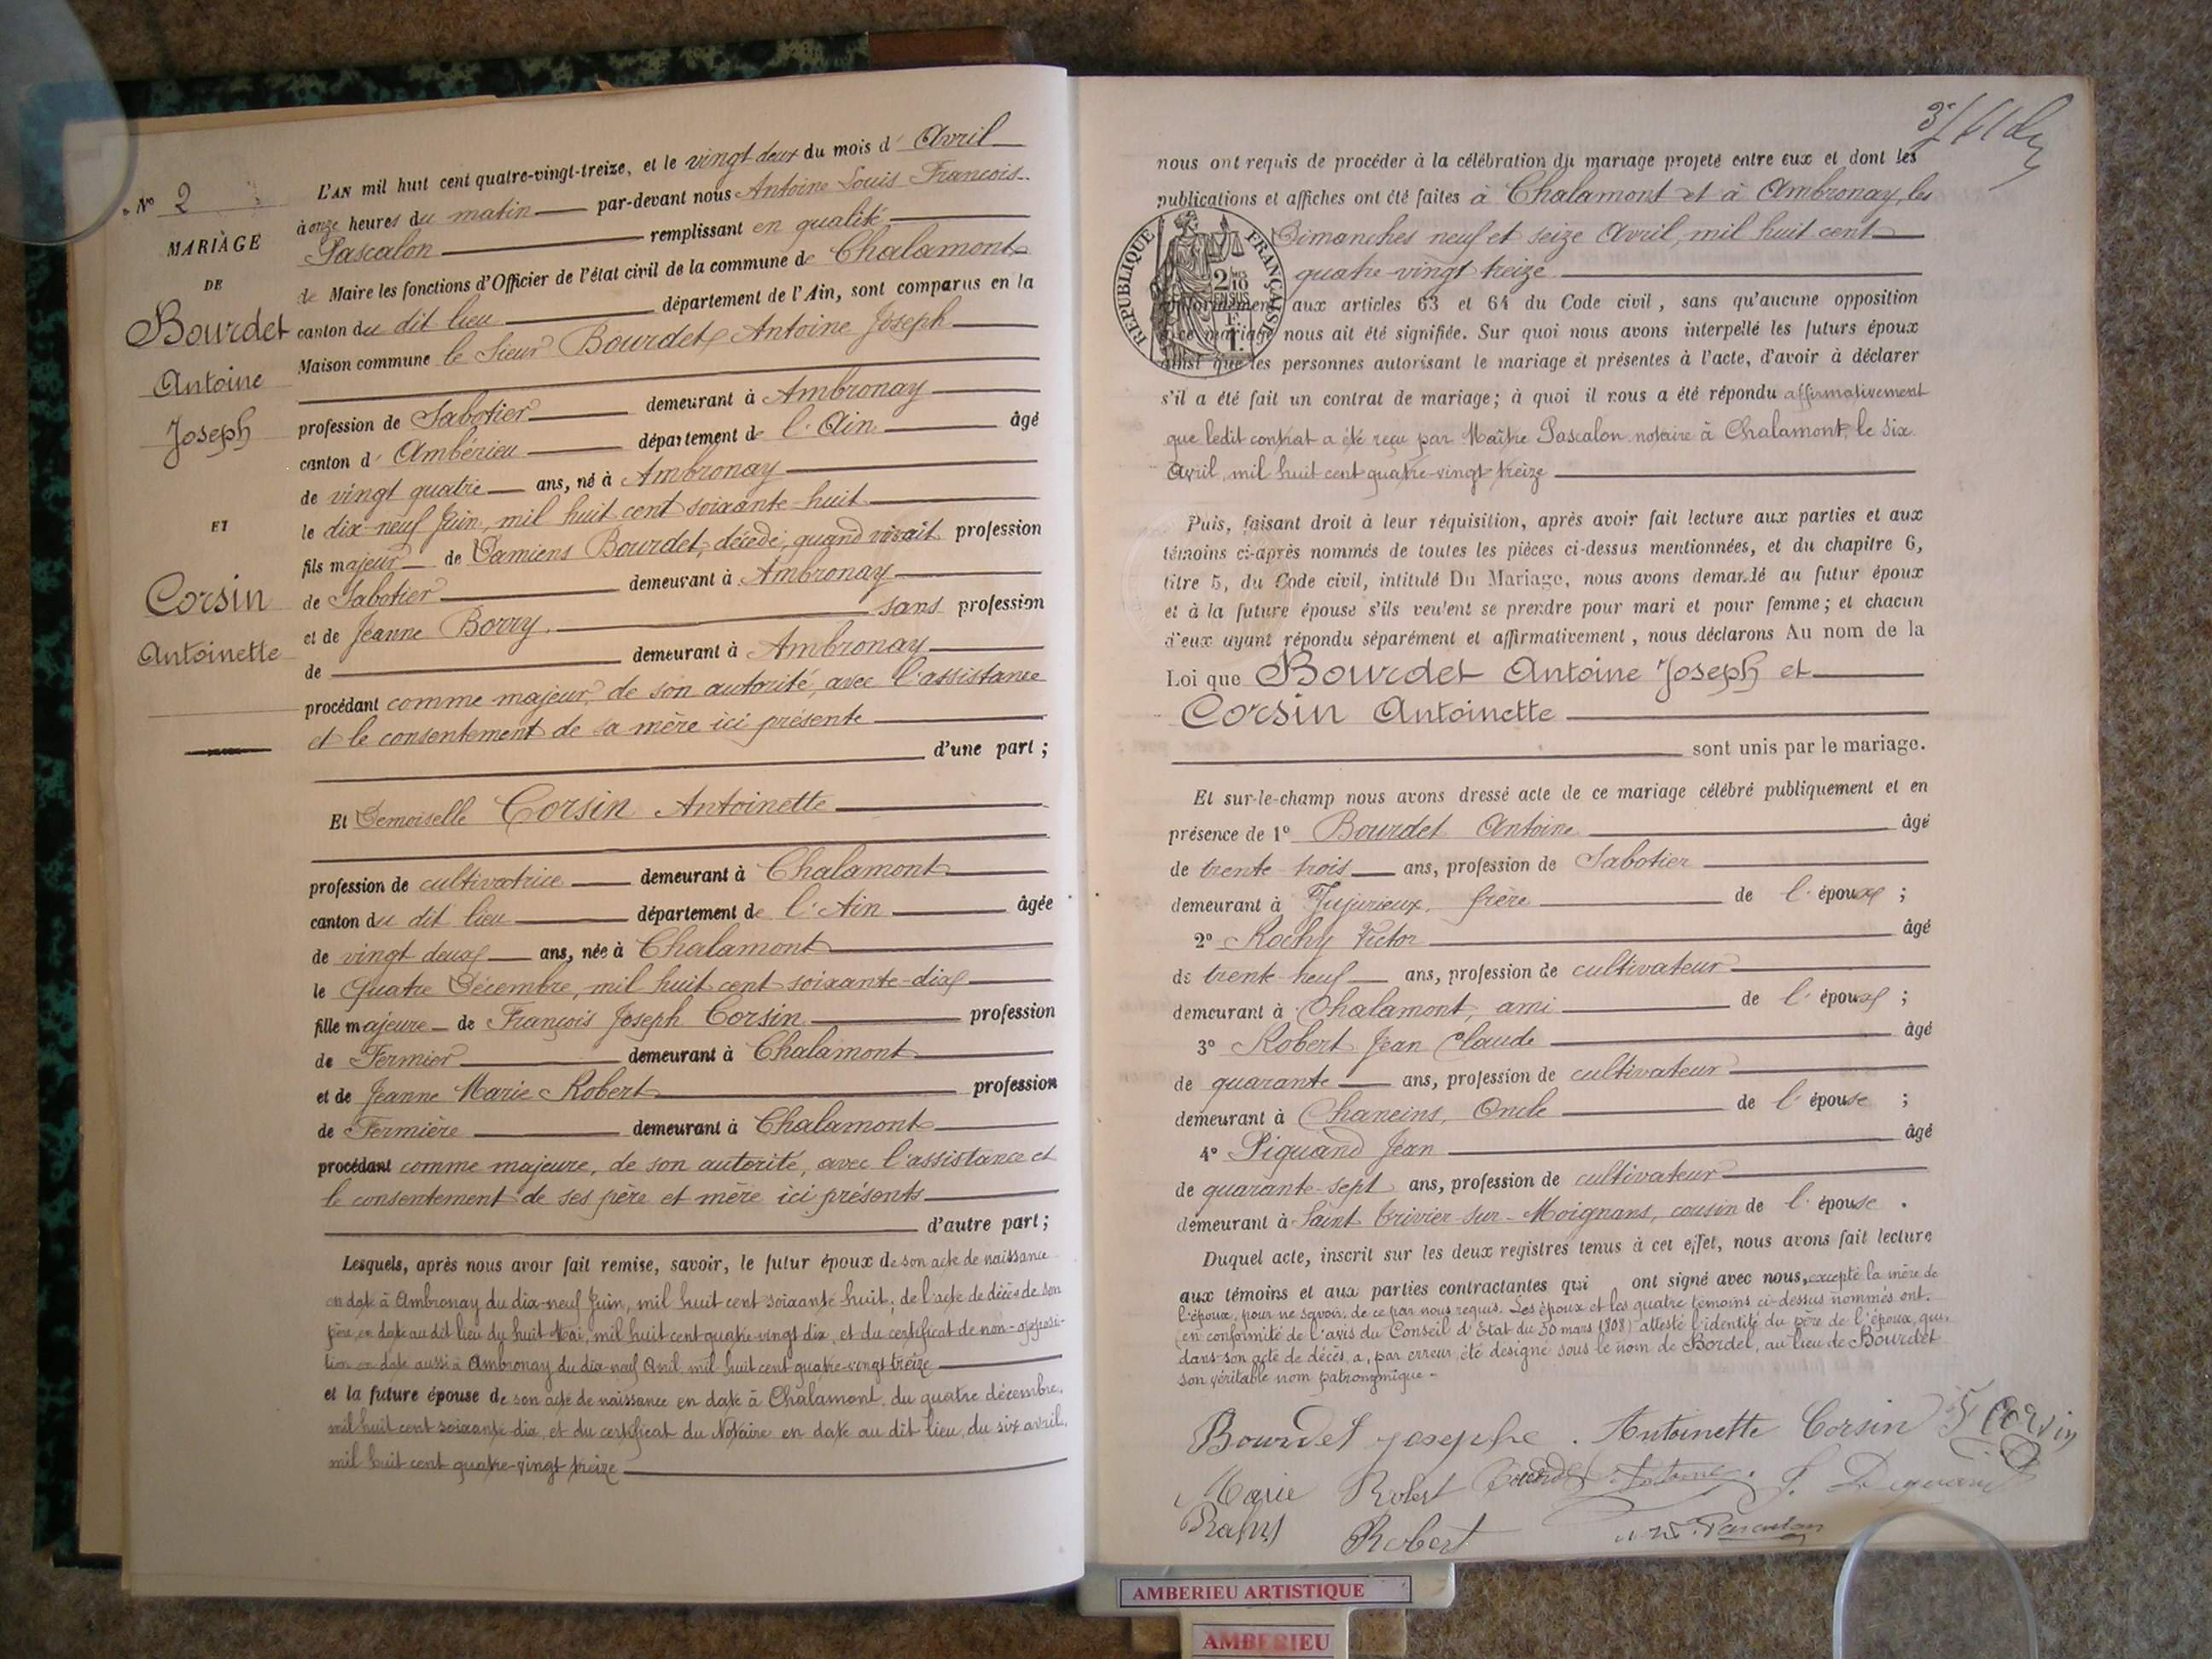 N° 2
MARIAGE
DE
Bourdet
Antoine
Joseph
ET
Corsin
Antoinette
L'AN mil huit cent quatre-vingt-treize, et le vingt deux du mois d' Avril
à onze heures du matin par-devant nous Antoine Louis François
Pascalon remplissant en qualité
de Maire les fonctions d'Officier de l'état civil de la commune de Chalamont
canton du dit lieu département de l'Ain, sont comparus en la
Maison commune le Sieur Bourdet Antoine Joseph
profession de Sabotier demeurant à Ambronay
canton d' Ambérieu département de l'Ain âgé
de vingt quatre ans, né à Ambronay
le dix-neuf Juin, mil huit cent soixante-huit
fils majeur de Damiens Bourdet, décédé, quand vivait profession
de Sabotier demeurant à Ambronay
et de Jeanne Borry sans profession
de demeurant à Ambronay
procédant comme majeur, de son autorité, avec l'assistance
et le consentement de sa mère ici présente
d'une part ;
Et Demoiselle Corsin Antoinette
profession de cultivatrice demeurant à Chalamont
canton du dit lieu département de l'Ain âgée
de vingt deux ans, née à Chalamont
le Quatre Décembre, mil huit cent soixante-dix
fille majeure de François Joseph Corsin profession
de Fermier demeurant à Chalamont
et de Jeanne Marie Robert profession
de Fermière demeurant à Chalamont
procédant comme majeure, de son autorité, avec l'assistance et
le consentement de ses père et mère ici présents
d'autre part ;
Lesquels, après nous avoir fait remise, savoir, le futur époux de son acte de naissance
en date à Ambronay du dix-neuf Juin, mil huit cent soixante huit ; de l'acte de décès de son
père, en date au dit lieu du huit Mai, mil huit cent quatre-vingt dix, et du certificat de non-opposi-
tion en date aussi à Ambronay du dix-neuf Avril mil huit cent quatre-vingt treize
et la future épouse de son acte de naissance en date à Chalamont du quatre décembre,
mil huit cent soixante-dix, et du certificat du Notaire en date au dit lieu, du six avril,
mil huit cent quatre-vingt treize
nous ont requis de procéder à la célébration du mariage projeté entre eux et dont les
publications et affiches ont été faites à Chalamont et à Ambronay, les
Dimanches neuf et seize Avril, mil huit cent
quatre-vingt treize
REPUBLIQUE FRANÇAISE
conformément aux articles 63 et 64 du Code civil, sans qu'aucune opposition
à ce mariage nous ait été signifiée. Sur quoi nous avons interpellé les futurs époux
ainsi que les personnes autorisant le mariage et présentes à l'acte, d'avoir à déclarer
s'il a été fait un contrat de mariage ; à quoi il nous a été répondu affirmativement
que ledit contrat a été reçu par Maître Pascalon notaire à Chalamont, le six
Avril, mil huit cent quatre-vingt treize
Puis, faisant droit à leur réquisition, après avoir fait lecture aux parties et aux
témoins ci-après nommés de toutes les pièces ci-dessus mentionnées, et du chapitre 6,
titre 5, du Code civil, intitulé Du Mariage, nous avons demandé au futur époux
et à la future épouse s'ils veulent se prendre pour mari et pour femme ; et chacun
d'eux ayant répondu séparément et affirmativement, nous déclarons Au nom de la
Loi que Bourdet Antoine Joseph et
Corsin Antoinette
sont unis par le mariage.
Et sur-le-champ nous avons dressé acte de ce mariage célébré publiquement et en
présence de 1° Bourdet Antoine âgé
de trente trois ans, profession de Sabotier
demeurant à Jujurieux, frère de l'époux ;
2° Rochy Victor âgé
de trente-neuf ans, profession de cultivateur
demeurant à Chalamont, ami de l'époux ;
3° Robert Jean Claude âgé
de quarante ans, profession de cultivateur
demeurant à Chaneins, Oncle de l'épouse ;
4° Piquand Jean âgé
de quarante-sept ans, profession de cultivateur
demeurant à Saint Trivier-sur-Moignans, cousin de l'épouse .
Duquel acte, inscrit sur les deux registres tenus à cet effet, nous avons fait lecture
aux témoins et aux parties contractantes qui ont signé avec nous, excepté la mère de
l'époux, pour ne savoir, de ce par nous requis. Les époux et les quatre témoins ci-dessus nommés ont,
(en conformité de l'avis du Conseil d'Etat du 30 mars 1808) attesté l'identité du père de l'époux, qui,
dans son acte de décès a, par erreur, été désigné sous le nom de Bordel, au lieu de Bourdet
son véritable nom patronymique -
Bourdet josephe . Antoinette Corsin F Corsin
Marie Robert Bourdet Antoine J. Piquand
Robert Pascalon
AMBERIEU ARTISTIQUE
AMBERIEU